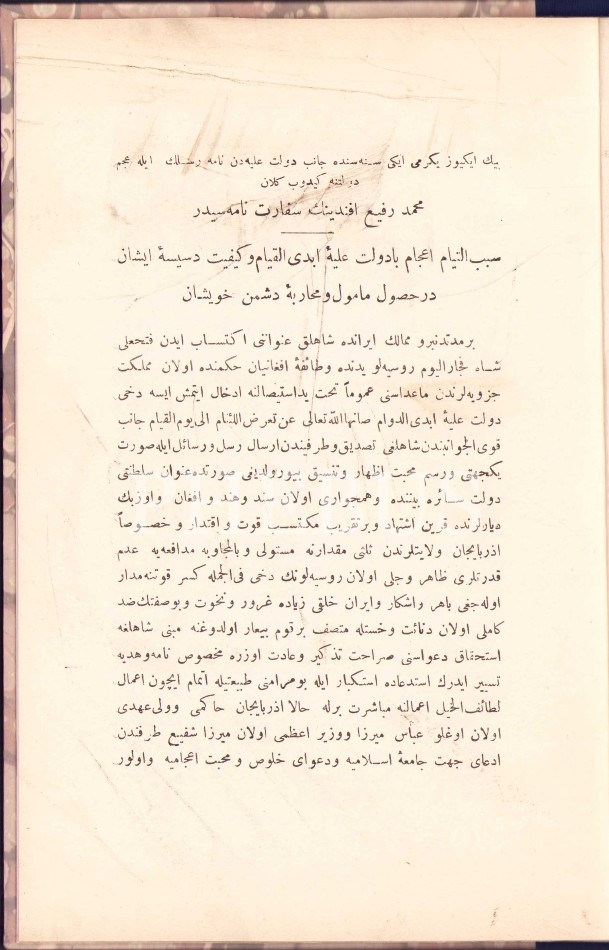 بیك ایكیوز یكرمی ایكی سنه‌سنده جانب دولت علیه‌دن نامه رسلك ایله عجم
دولتنه كیدوب كلان
محمد رفیع افندینك سفارت نامه‌سیدر
سبب التیام اعجام بادولت علیهٔ ابدی القیام وكیفیت دسیسهٔ ایشان
درحصول مامول ومحاربهٔ دشمن خویشان
برمدتدنبرو ممالك ایرانده شاهلق عنواننی اكتساب ایدن فتحعلی
شاه قجار الیوم روسیه‌لو یدنده وطائفهٔ افغانیان حكمنده اولان مملكت
جزویه‌لرندن ماعداسنی عموماً تحت یداستیصالنه ادخال ایتمش ایسه دخی
دولت علیهٔ ابدی‌الدوام صانها الله تعالی عن تعرض اللئام الی یوم القیام جانب
قوی الجوانبندن شاهلغی تصدیق وطرفیندن ارسال رسل ورسائل ایله صورت
یكجهتی ورسم محبت اظهار وتنسیق بیورولدیغی صورتده عنوان سلطنتی
دولت سائره بیننده وهمجواری اولان سند وهند و افغان واوزبك
دیارلرنده قرین اشتهاد وبرتقریب مكتسب قوت و اقتدار و خصوصاً
اذربایجان ولایتلرندن ثلثی مقدارنه مستولی وبالمجاوبه مدافعه‌یه عدم
قدرتلری ظاهر وجلی اولان روسیه‌لونك دخی فی الجمله كسر قوتنه مدار
اوله‌جغی باهر واشكار وایران خلقی زیاده غرور ونخوت وبوصفتك ضد
كاملی اولان دنائت وخستله متصف برقوم بیعار اولدوغنه مبنی شاهلغه
استحقاق دعواسنی صراحت تذكیر وعادت اوزره مخصوص نامه وهدیه
تسییر ایدرك استدعاده استكبار ایله بومرامنی طبیعتیله اتمام ایچون اعمال
لطائف الحیل اعمالنه مباشرت برله حالا اذربایجان حاكمی وولی عهدی
اولان اوغلو عباس میرزا ووزیر اعظمی اولان میرزا شفیع طرفندن
ادعای جهت جامعهٔ اسلامیه ودعوای خلوص و محبت اعجامیه واولور